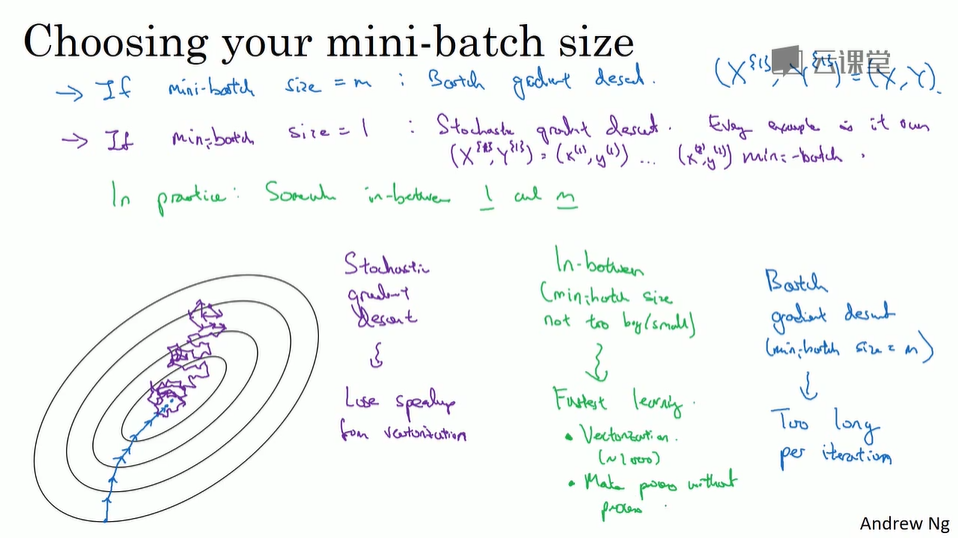 Choosing your mini-batch size
→ If mini-batch size = m : Batch gradient descent. (X^{1}, Y^{1}) = (X, Y).
云课堂
→ If mini-batch size = 1 : Stochastic gradient descent. Every example is it own
(X^{1}, Y^{1}) = (x^(1), y^(1)) ... mini-batch.
In practice: Somewhere in-between 1 and m
Stochastic
gradient
descent
Lose speedup
from vectorization
In-between
(mini-batch size
not too big/small)
Fastest learning.
• Vectorization.
(~1000)
• Make progress without
Batch
gradient descent
(mini-batch size = m)
Too long
per iteration
Andrew Ng